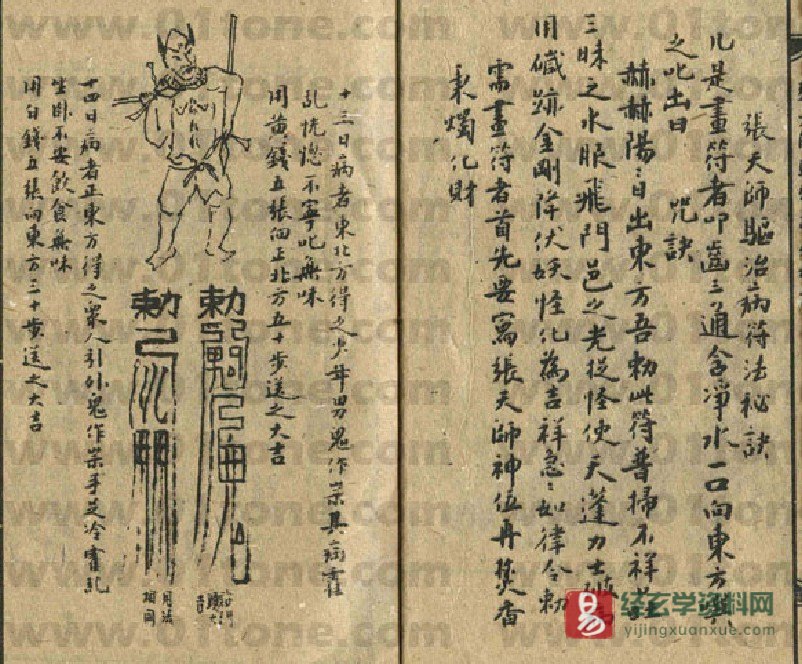 張天師驅治病符法秘訣
凡是畫符者叩齒三通含淨水一口向東方
之叱出曰 咒訣
赫赫陽陽日出東方吾勅此符普掃不祥
三昧之水眼飛門邑之光捉怪使天蓬力士
用碱跡金剛降伏妖怪化為吉祥急急如律令勅
需畫符者首先要寫張天師神位再焚香
秉燭化財
十三日病者東北方得之少年男鬼作祟其病
乱恍惚不寧叱無味
用黄錢五張向上北方五十步送之大吉
勅
勅
十四日病者正東方得之眾人引外鬼作祟手足冷
生卧不安飲食無味
用白錢五張向東方三十步送之大吉
www.01tone.com
易
经玄学资料网
yijingxuanxue.com